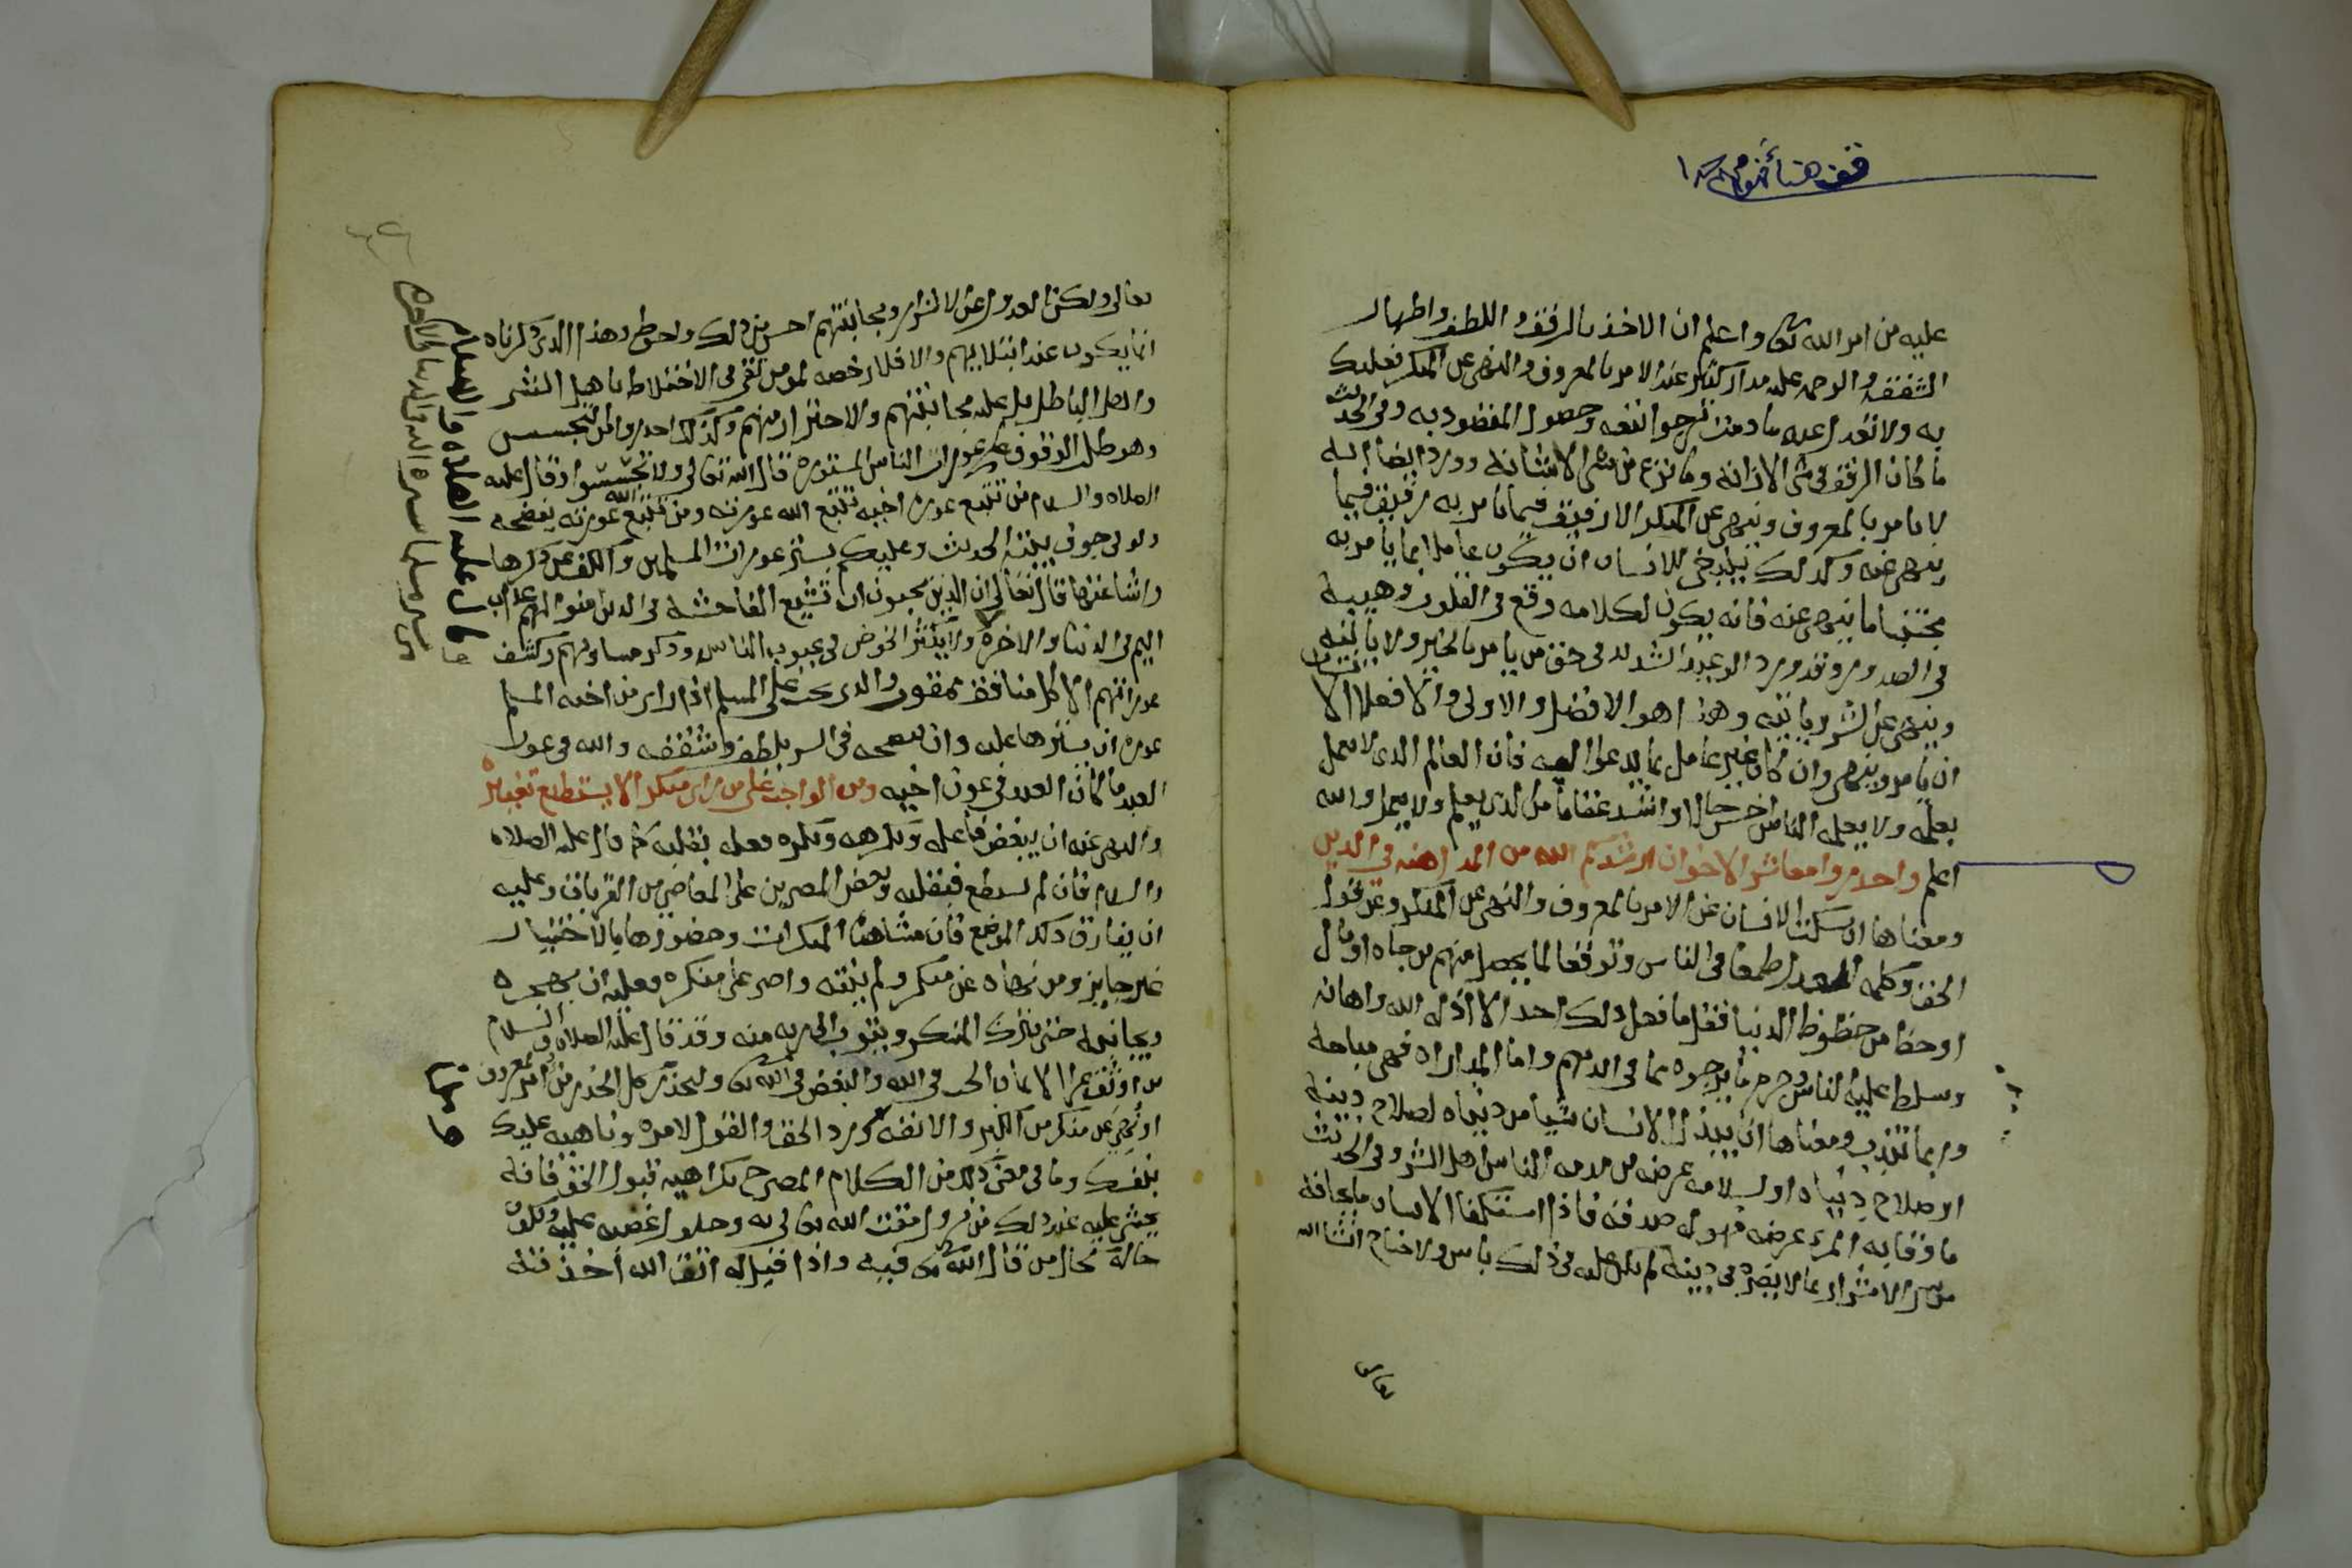 قف هنا
عليه من امر الله تعالى واعلم ان الاخذ بالرفق واللطف واظهار
الشفقة والرحمة عليه مدار كبير عند الامر بالمعروف والنهي عن المنكر فعليك
به ولا تعدل عنه ما دمت ترجوا نفعه وحصول المقصود به وفي الحديث
ما كان الرفق في شي الا زانه وما نزع من شي الا شانه وورد ايضا انه
لا يامر بالمعروف وينهى عن المنكر الا رفيق فيما يامر به رفيق فيما
ينهى عنه وكذلك ينبغي للانسان ان يكون عاملا بما يامر به
مجتنبا ما ينهى عنه فانه يكون لكلامه وقع في القلوب وهيبة
في الصدور وقد ورد الوعيد الشديد في حق من يامر بالخير ولا ياتيه
وينهى عن الشر وياتيه وهذا هو الافضل والاولى والا فعلى الانسان
ان يامر وينهى وان كان غير عامل بما يدعوا اليه فان العالم الذي لا يعمل
بعلمه ولا يعلمه الناس اخس حالا واشد عقابا من الذي يعلم ولا يعمل والله
اعلم واحذروا معاشر الاخوان ارشدكم الله من المداهنه في الدين
ومعناها ان يسكت الانسان عن الامر بالمعروف والنهي عن المنكر وعن قول
الحق وكلمه العدل طمعا في الناس وتوقعا لما يحصل منهم من جاه او مال
او حظ من حظوظ الدنيا فقل ما فعل ذلك احد الا اذله الله واهانه
وسلط عليه الناس وحرم ما يرجوه مما في ايديهم واما المداراه فهي مباحة
وربما تندب ومعناها ان يبذل الانسان شيا من دنياه لصلاح دينه
او صلاح دنياه او لسلامه عرضه من مذمه الناس اهل الشر وفي الحديث
ما وقا به المرء عرضه فهو له صدقه فاذا استكفا الانسان ما يخافه
من شر الاشرار بما لا يضره في دينه لم يكن عليه في ذلك باس ولا جناح انشا الله
تعالى
تعالى ولكن العدول عن الاشرار ومجانبتهم احسن من ذلك واحوط وهذا الذي ذكرناه
انما يكون عند ابتلائه بهم والا فلا رخصه لمومن تقي في الاختلاط باهل الشر
واهل الباطل بل عليه مجانبتهم والاحتراز منهم وكذلك احذروا من التجسس
وهو طلب الوقوف على عورات الناس المستوره قال الله تعالى ولا تجسسوا وقال عليه
الصلاه والسلام من تتبع عورة اخيه تتبع الله عورته ومن تتبع الله عورته يفضحه
ولو في جوف بيته الحديث وعليك بستر عورات المسلمين والكف عن ذكرها
واشاعتها قال تعالى ان الذين يحبون ان تشيع الفاحشة في الذين امنوا لهم عذاب
اليم في الدنيا والاخرة ولا يكثر الخوض في عيوب الناس وذكر مساويهم وكشف
عوراتهم الا كل منافق ممقوت والذي يجب على المسلم اذا راى من اخيه المسلم
عورة ان يسترها عليه وان ينصحه في السر بلطف وشفقه والله في عون
العبد ما كان العبد في عون اخيه ومن الواجب على من راى منكرا لا يستطيع تغييره
والنهي عنه ان يبغض فاعله ويكرهه ويكره فعله بقلبه كما قال عليه الصلاه
والسلام فان لم يستطع فبقلبه وبغض المصرين على المعاصي من القربات وعليه
ان يفارق ذلك الموضع فان مشاهدة المنكرات وحضورها بالاختيار
غير جايز ومن نهاه عن منكر ولم ينته واصر على منكره فعليه ان يهجره
ويجانبه حتى يترك المنكر ويتوب الى ربه منه وقد قال عليه الصلاه والسلام
من اوثق عرا الايمان الحب في الله والبغض في الله تعالى وليحذر كل الحذر من امر بمعروف
او نهي عن منكر من الكبر والانفه ورد الحق والقول لامره وناهيه عليك
بنفسك وما في معنى ذلك من الكلام المصرح بكراهيه قبول الحق فانه
يخشى عليه عند ذلك من نزول مقت الله تعالى به وحلول غضبه عليه وتكون
حاله كحال من قال الله تعالى فيه واذا قيل له اتق الله اخذته
قال عليه الصلاه والسلام
من ستر مسلما ستره الله في الدنيا والاخره